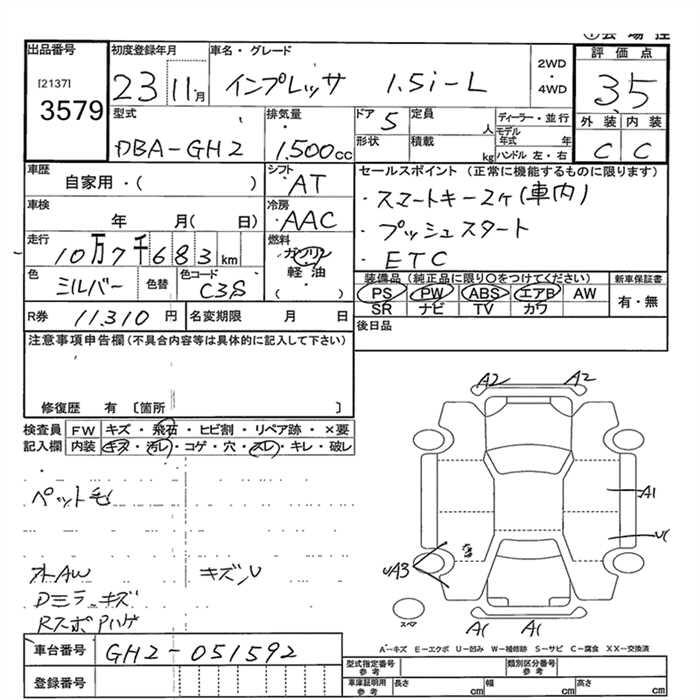 出品番号
[2137]
3579
初度登録年月
23 11月
車名・グレード
インプレッサ 1.5i-L
2WD
・
4WD
評価点
3.5
外装 内装
C C
型式
DBA-GH2
排気量
1.500cc
ドア 5
形状
定員 人
積載 kg
ディーラー・並行
モデル年式 年
ハンドル 左・右
車歴
自家用・( )
シフト
AT
車検
年 月( 日)
冷房
AAC
走行
10万7千683km
燃料
ガソリン
軽油
( )
色
シルバー
色替
色コード
C3S
R券 11.310円
名変期限 月 日
セールスポイント (正常に機能するものに限ります)
・スマートキー2ヶ(車内)
・プッシュスタート
・ETC
装備品(純正品に限り〇をつけてください)
PS PW ABS エアB AW
SR ナビ TV カワ
新車保証書
有・無
後日品
注意事項申告欄(不具合内容等は具体的に記入して下さい)
修復歴 有 〔箇所 〕
検査員記入欄
FW キズ・飛石・ヒビ割・リペア跡・×要
内装 キズ・汚レ・コゲ・穴・スレ・キレ・破レ
ペット毛
オAW キズ、U
Dミラーキズ
RスポPハゲ
A2 A2
A1
UA3
スペア
A1 A1
A…キズ E…エクボ U…凹み W…補修跡 S…サビ C…腐食 XX…交換済
車台番号 GH2-051592
登録番号
型式指定番号 参考
類別区分番号 参考
車庫証明用 参考
長さ cm 幅 cm 高さ cm